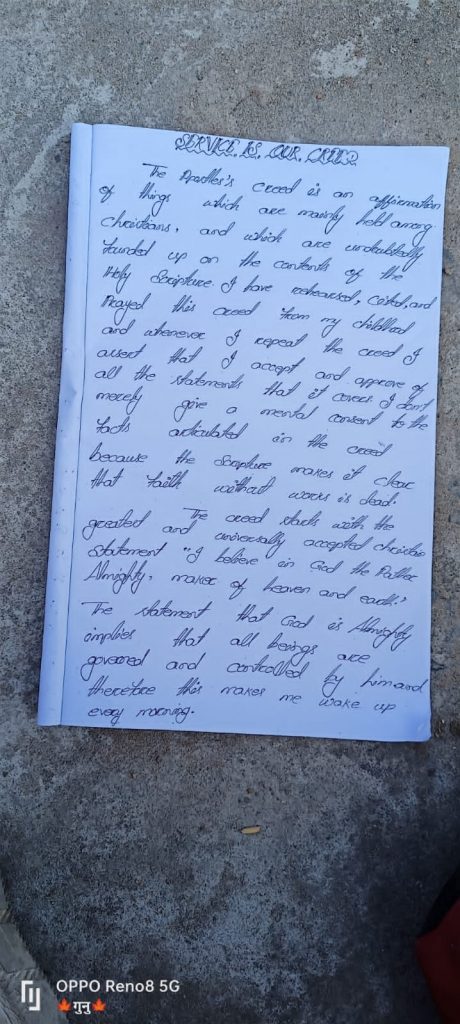 SERVICE IS OUR CREED
The Apostles's creed is an affirmation
of things which are mainly held among
christians, and which are undoubtedly
founded up on the contents of the
Holy Scripture. I have rehearsed, cited, and
Prayed this creed from my childhood
and whenever I repeat the creed I
assert that I accept and approve of
all the statements that it covers. I don't
merely give a mental consent to the
facts articulated in the creed
because the Scripture makes it clear
that faith without works is dead.
The creed starts with the
greatest and universally accepted christian
statement "I believe in God the Father
Almighty, maker of heaven and earth."
The statement that God is Almighty
implies that all beings are
governed and controlled by him and
therefore this makes me wake up
every morning.
OPPO Reno8 5G
🍁गुनु🍁